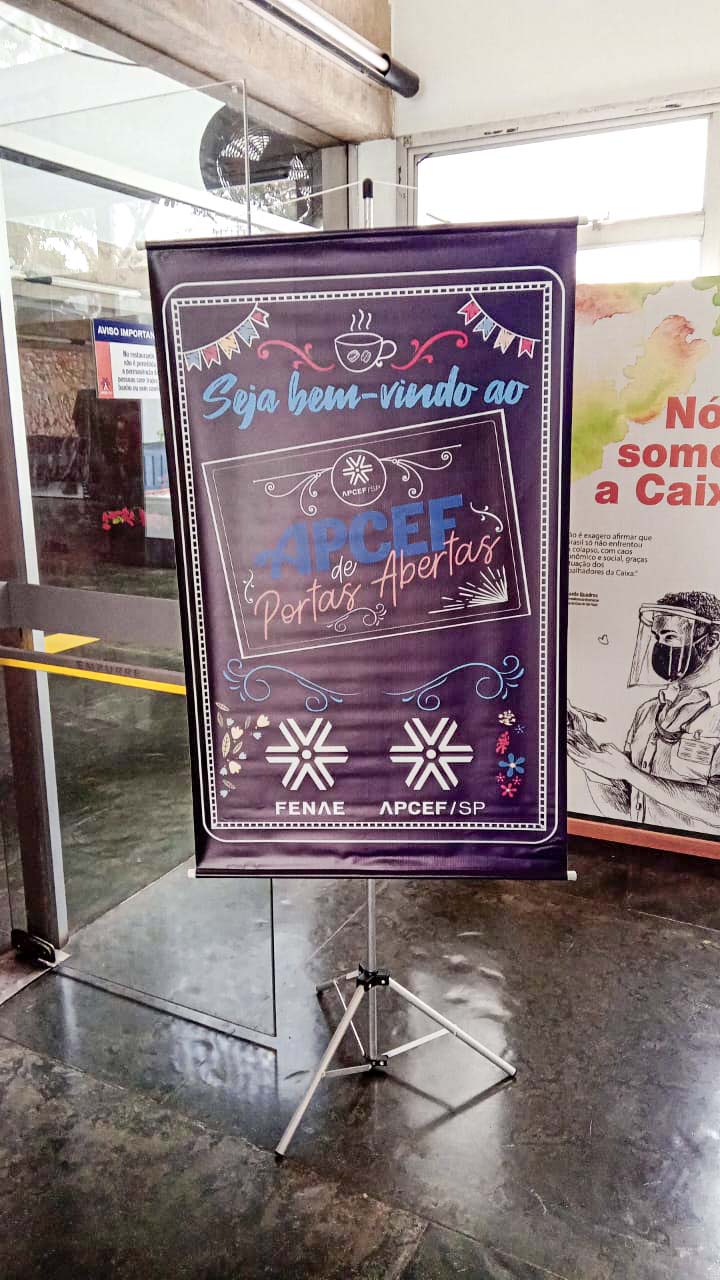 AVISO IMPORTAN
No restaurante
não é permitida
a permanência de
Seja bem-vindo ao
APCEF/SP
APCEF
de
Portas Abertas
FENAE
APCEF/SP
EMPURRE
Nó
some
a Caix
ão é exagero afirmar que
rasil só não enfrentou
colapso, com caos
onômico e social, graças
tuação dos
balhadores da Caixa."